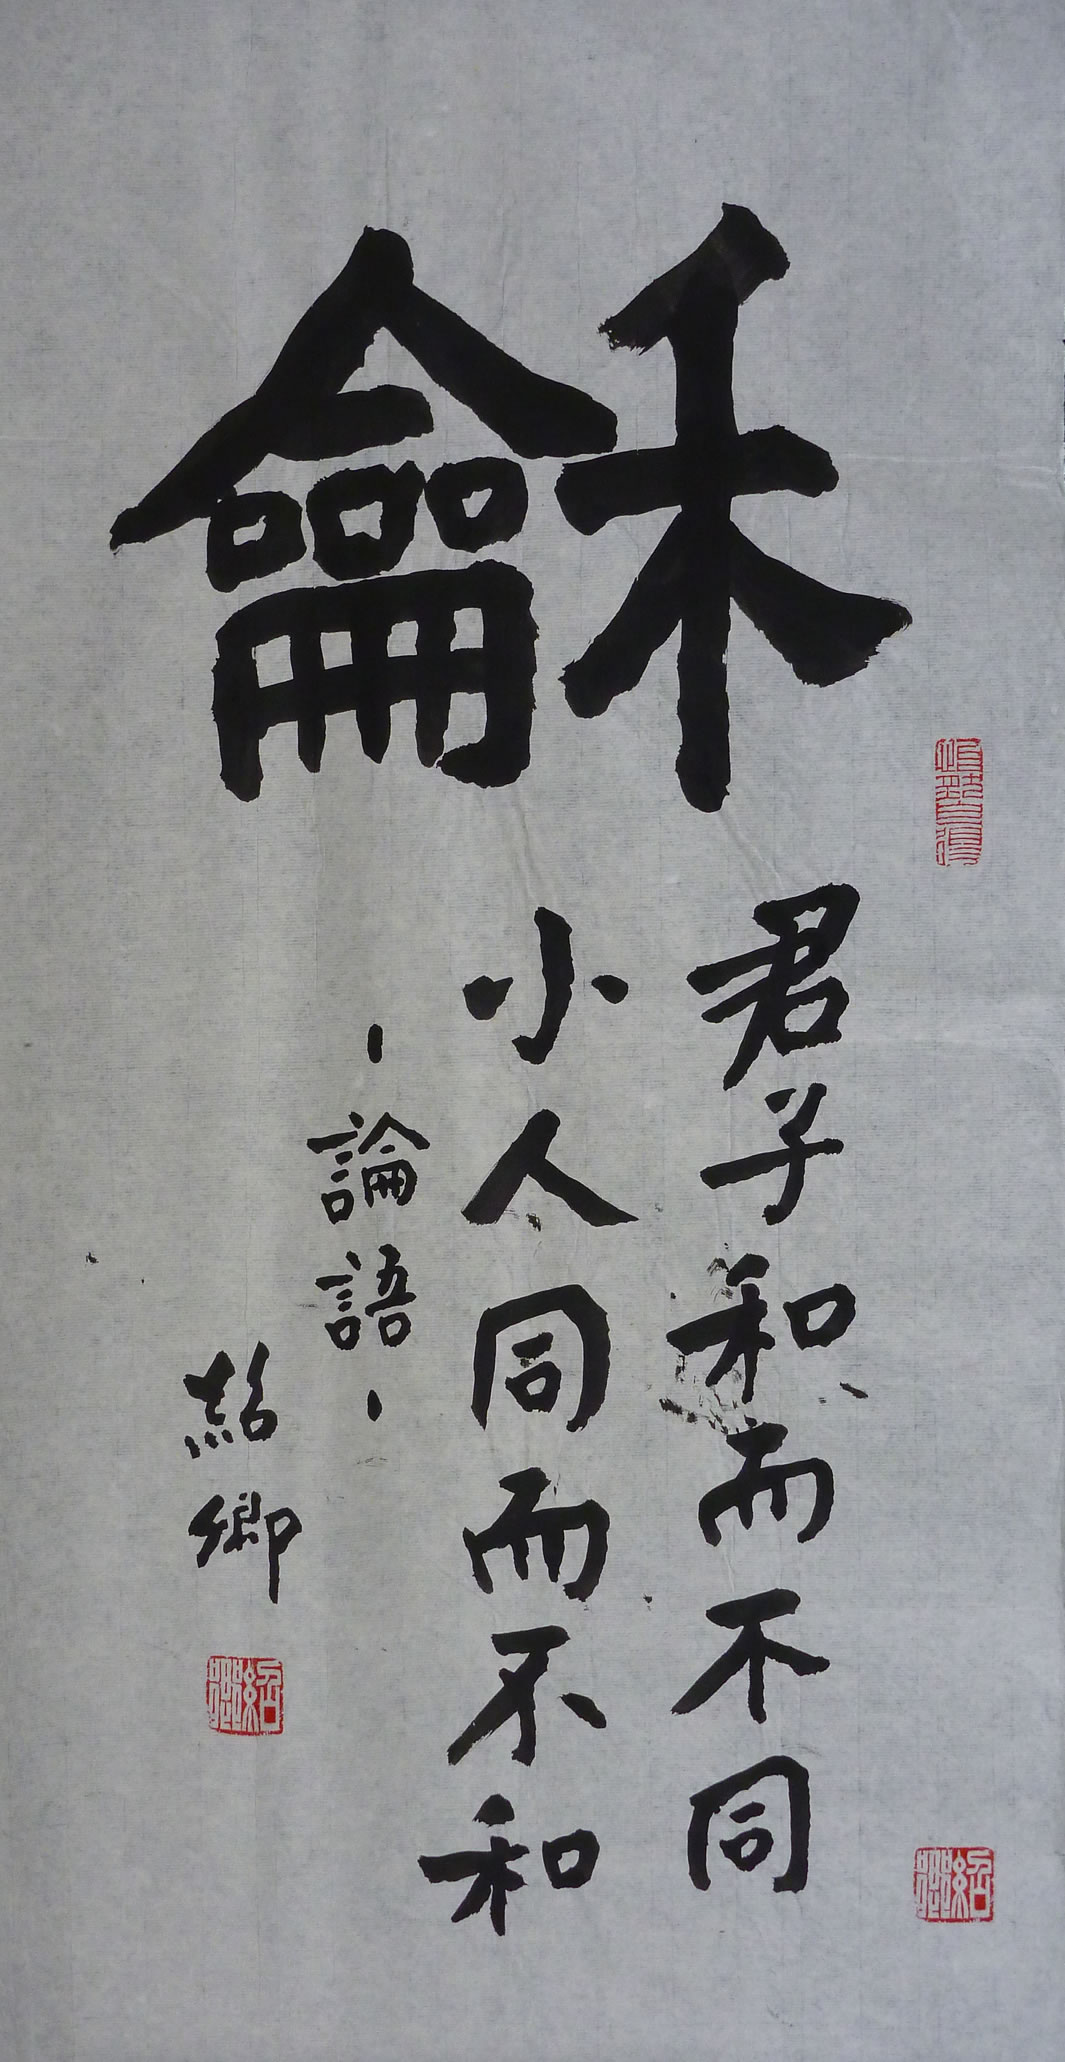 龢
君子和而不同
小人同而不和
-論語-
紹卿